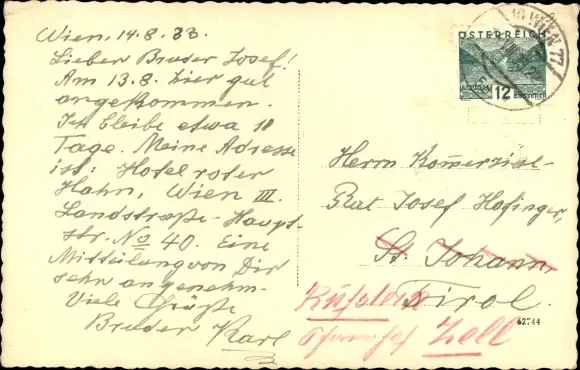 Wien, 14.8.33.
Lieber Bruder Josef!
Am 13.8. hier gut
angekommen.
Ich bleibe etwa 10
Tage. Meine Adresse
ist: Hotel roter
Hahn, Wien III.
Landstraße-Haupt-
str. No 40. Eine
Mitteilung von Dir
sehr angenehm.
Viele Grüße
Bruder Karl
ÖSTERREICH
12
WIEN 77
Herrn Kom̅erzial-
Rat Josef Hofinger,
St. Johann
Tirol.
Kufstein
Zell
62744